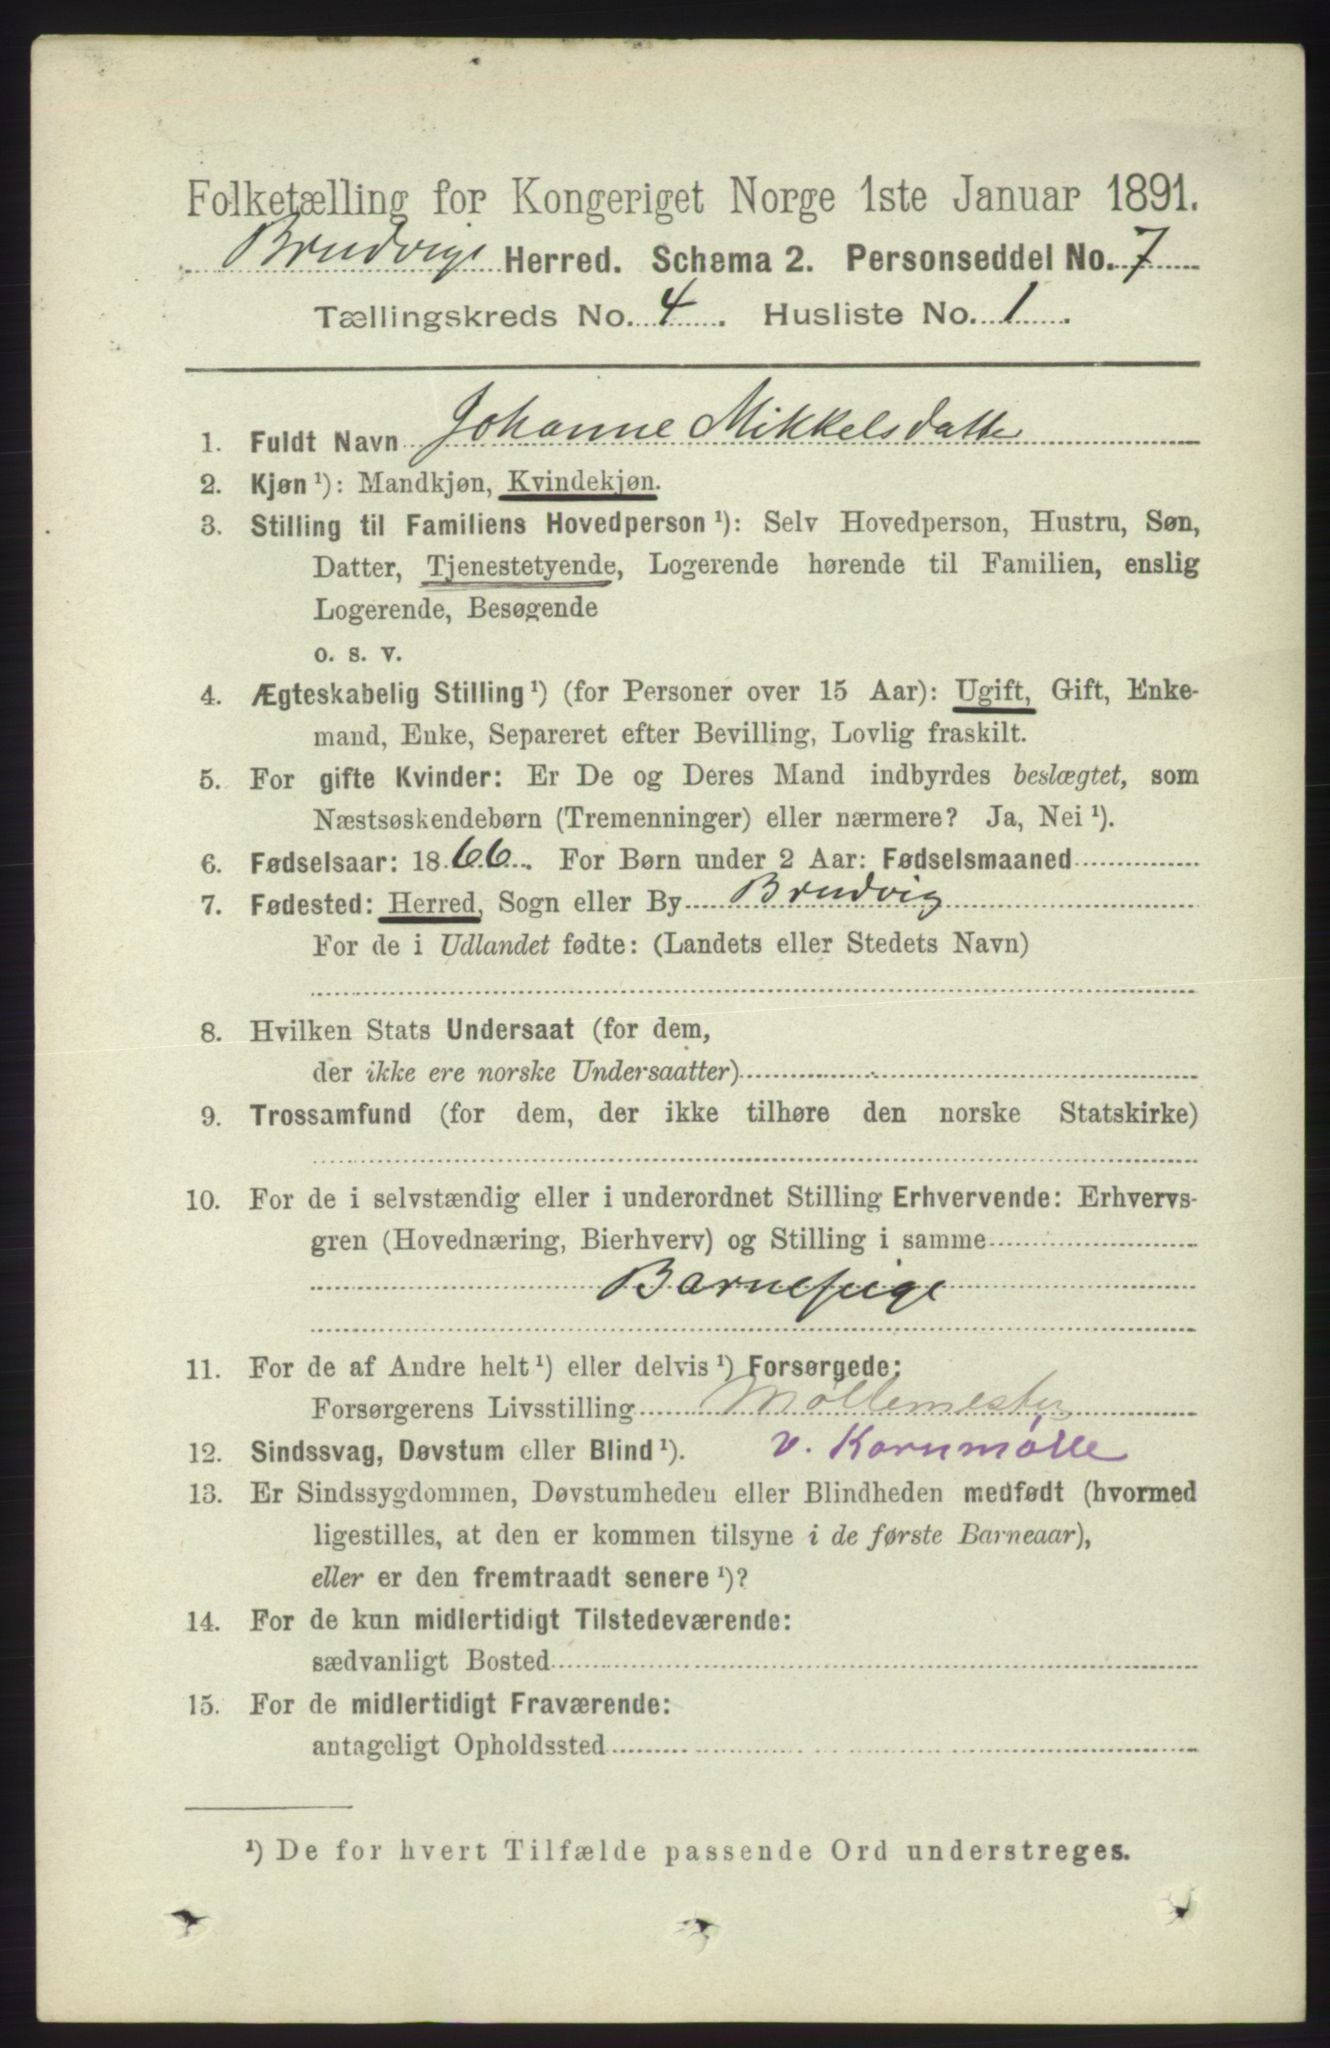 Folketælling for Kongeriget Norge 1ste Januar 1891.
Brudvigs Herred. Schema 2. Personseddel No. 7
Tællingskreds No. 4. Husliste No. 1.
1. Fuldt Navn Johanne Mikkelsdatter
2. Kjøn ¹): Mandkjøn, Kvindekjøn.
3. Stilling til Familiens Hovedperson ¹): Selv Hovedperson, Hustru, Søn,
Datter, Tjenestetyende, Logerende hørende til Familien, enslig
Logerende, Besøgende
o. s. v.
4. Ægteskabelig Stilling ¹) (for Personer over 15 Aar): Ugift, Gift, Enke-
mand, Enke, Separeret efter Bevilling, Lovlig fraskilt.
5. For gifte Kvinder: Er De og Deres Mand indbyrdes beslægtet, som
Næstsøskendebørn (Tremenninger) eller nærmere? Ja, Nei ¹).
6. Fødselsaar: 1866. For Børn under 2 Aar: Fødselsmaaned
7. Fødested: Herred, Sogn eller By Brudvig
For de i Udlandet fødte: (Landets eller Stedets Navn)
8. Hvilken Stats Undersaat (for dem,
der ikke ere norske Undersaatter)
9. Trossamfund (for dem, der ikke tilhøre den norske Statskirke)
10. For de i selvstændig eller i underordnet Stilling Erhvervende: Erhvervs-
gren (Hovednæring, Bierhverv) og Stilling i samme
Barnepige
11. For de af Andre helt ¹) eller delvis ¹) Forsørgede:
Forsørgerens Livsstilling Møllemester
12. Sindssvag, Døvstum eller Blind ¹). v. Kornmølle
13. Er Sindssygdommen, Døvstumheden eller Blindheden medfødt (hvormed
ligestilles, at den er kommen tilsyne i de første Barneaar),
eller er den fremtraadt senere ¹)?
14. For de kun midlertidigt Tilstedeværende:
sædvanligt Bosted
15. For de midlertidigt Fraværende:
antageligt Opholdssted
¹) De for hvert Tilfælde passende Ord understreges.